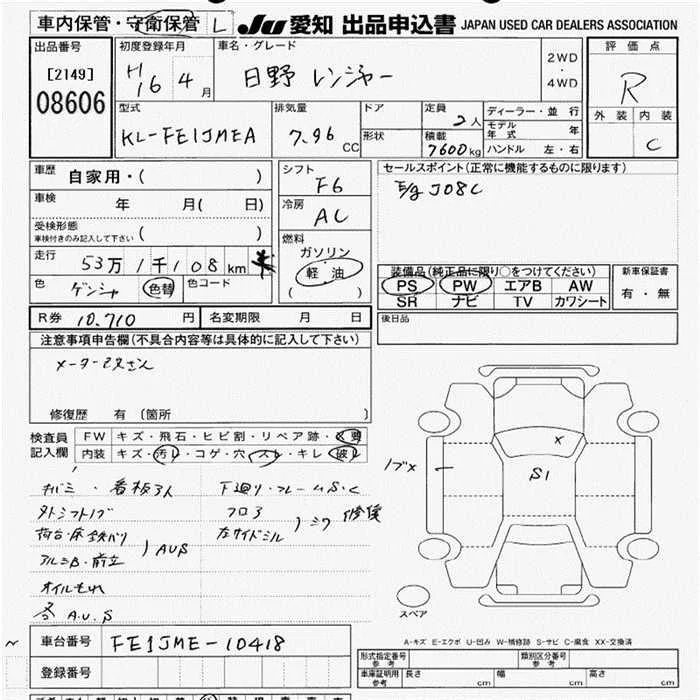 車内保管・守衛保管 L JU 愛知 出品申込書 JAPAN USED CAR DEALERS ASSOCIATION
出品番号 初度登録年月 車名・グレード 評価点
[2149] H16 4月 日野 レンジャー 2WD・4WD R
08606 外装 内装
型式 排気量 ドア 定員 2人 ディーラー・並行 C
KL-FE1JMEA 7.96 CC 形状 積載 7600kg モデル年式 年
ハンドル 左・右
車歴 自家用・( ) シフト F6 セールスポイント(正常に機能するものに限ります)
車検 年 月( 日) 冷房 AC E/g J08C
受検形態 車検付きのみ記入して下さい ( )
燃料 ガソリン 軽油 ( )
走行 53万1千108km
色 ゲンシャ 色替 色コード
装備品(純正品に限り○をつけてください) 新車保証書
PS PW エアB AW 有・無
SR ナビ TV カワシート
R券 10,710円 名変期限 月 日 後日品
注意事項申告欄(不具合内容等は具体的に記入して下さい)
修復歴 有 (箇所 )
検査員記入欄 FW キズ・飛石・ヒビ割・リペア跡・
内装 キズ・汚レ・コゲ・穴・スレ・キレ・破レ
1ブ× × S1
キバミ・看板 下廻り・フレームS・C
外シフトノブ フロア
荷台・床鉄バリ 左サイドシル
アルミB・前立 AUS
オイルもれ
A.U.S
スペア
A-キズ E-エクボ U-凹み W-補修跡 S-サビ C-腐食 XX-交換済
車台番号 FE1JME-10418
登録番号
形式指定番号 参考 類別区分番号 参考
車庫証明用 参考 長さ cm 幅 cm 高さ cm